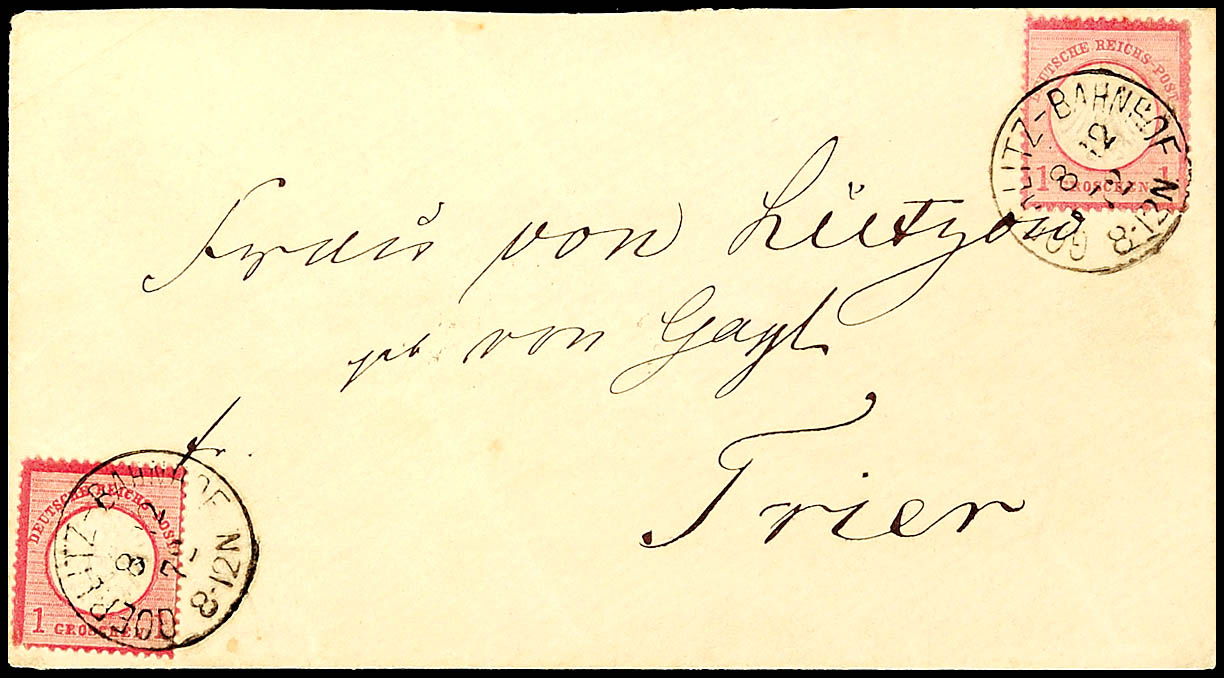 DEUTSCHE REICHS-POST
1 GROSCHEN 1
GOERLITZ-BAHNHOF
8-12N
Frau von Lützow
geb von Gayl
Trier
fr.
DEUTSCHE REICHS-POST
1 GROSCHEN 1
GOERLITZ-BAHNHOF
8-12N